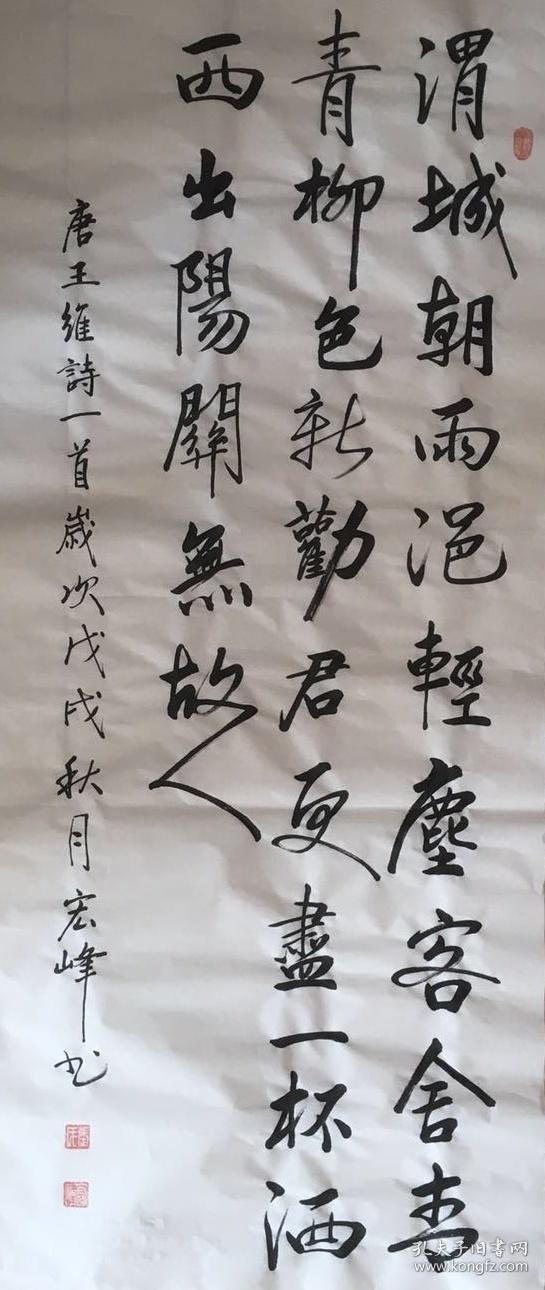 渭城朝雨浥輕塵客舍青
青柳色新勸君更盡一杯酒
西出陽關無故人
唐王維詩一首歲次戊戌秋月宏峰书
孔夫子旧书网
www.kongfz.com